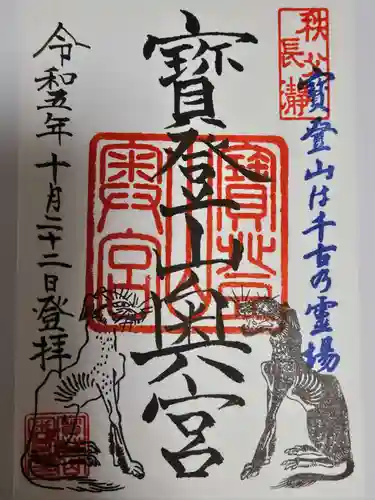 秩父
長瀞
寶登山は千古乃霊場
寶登山奥宮
令和五年十月二十二日登拝